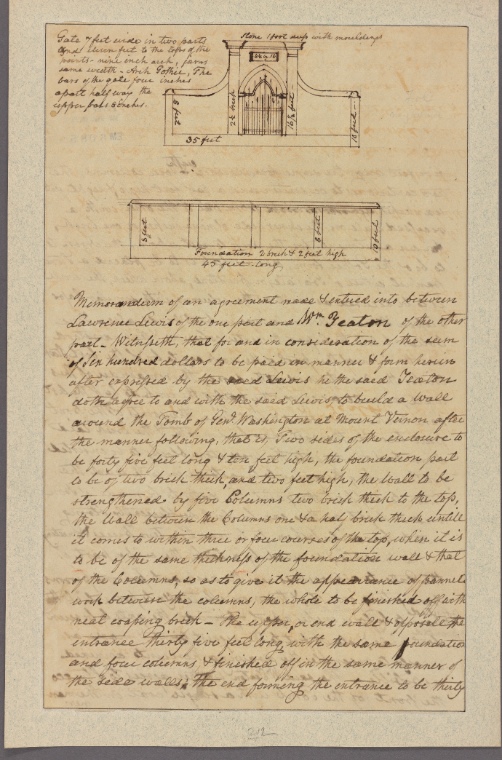 Gate 7 feet wide in two parts
and eleven feet to the top of the
points - nine inch arch, jams
same width - Arch Gothic, The
bars of the gate four inches
apart half way the
upper part 8 inches.
Stone 1 foot deep with mouldings
8 feet
2½ brick
10½ feet
10 feet
35 feet
8 feet
8 feet
10 feet
Foundation 2 brick & 2 feet high
45 feet long
Memorandum of an agreement made & entered into between
Lawrence Lewis of the one part and Wm Yeaton of the other
part - Witnesseth, that for and in consideration of the sum
of Six hundred dollars to be paid in manner & form herein
after expressed by the said Lewis he the said Yeaton
doth agree to and with the said Lewis to build a wall
around the Tomb of Genl Washington at Mount Vernon after
the manner following, that is, Two sides of the enclosure to
be forty five feet long & ten feet high, the foundation part
to be of two brick thick, and two feet high, the wall to be
strengthened by five Columns two brick thick to the top,
the Wall between the Columns one & a half brick thick untill
it comes to within three or four courses of the top, when it is
to be of the same thickness of the foundation wall & that
of the Columns, so as to give it the appearance of pannel
work between the columns, the whole to be finished off with
neat coaping brick - the upper, or end wall & opposite the
entrance thirty five feet long, with the same foundation
and four columns, & finished off in the same manner of
the side walls; the end forming the entrance to be thirty
212